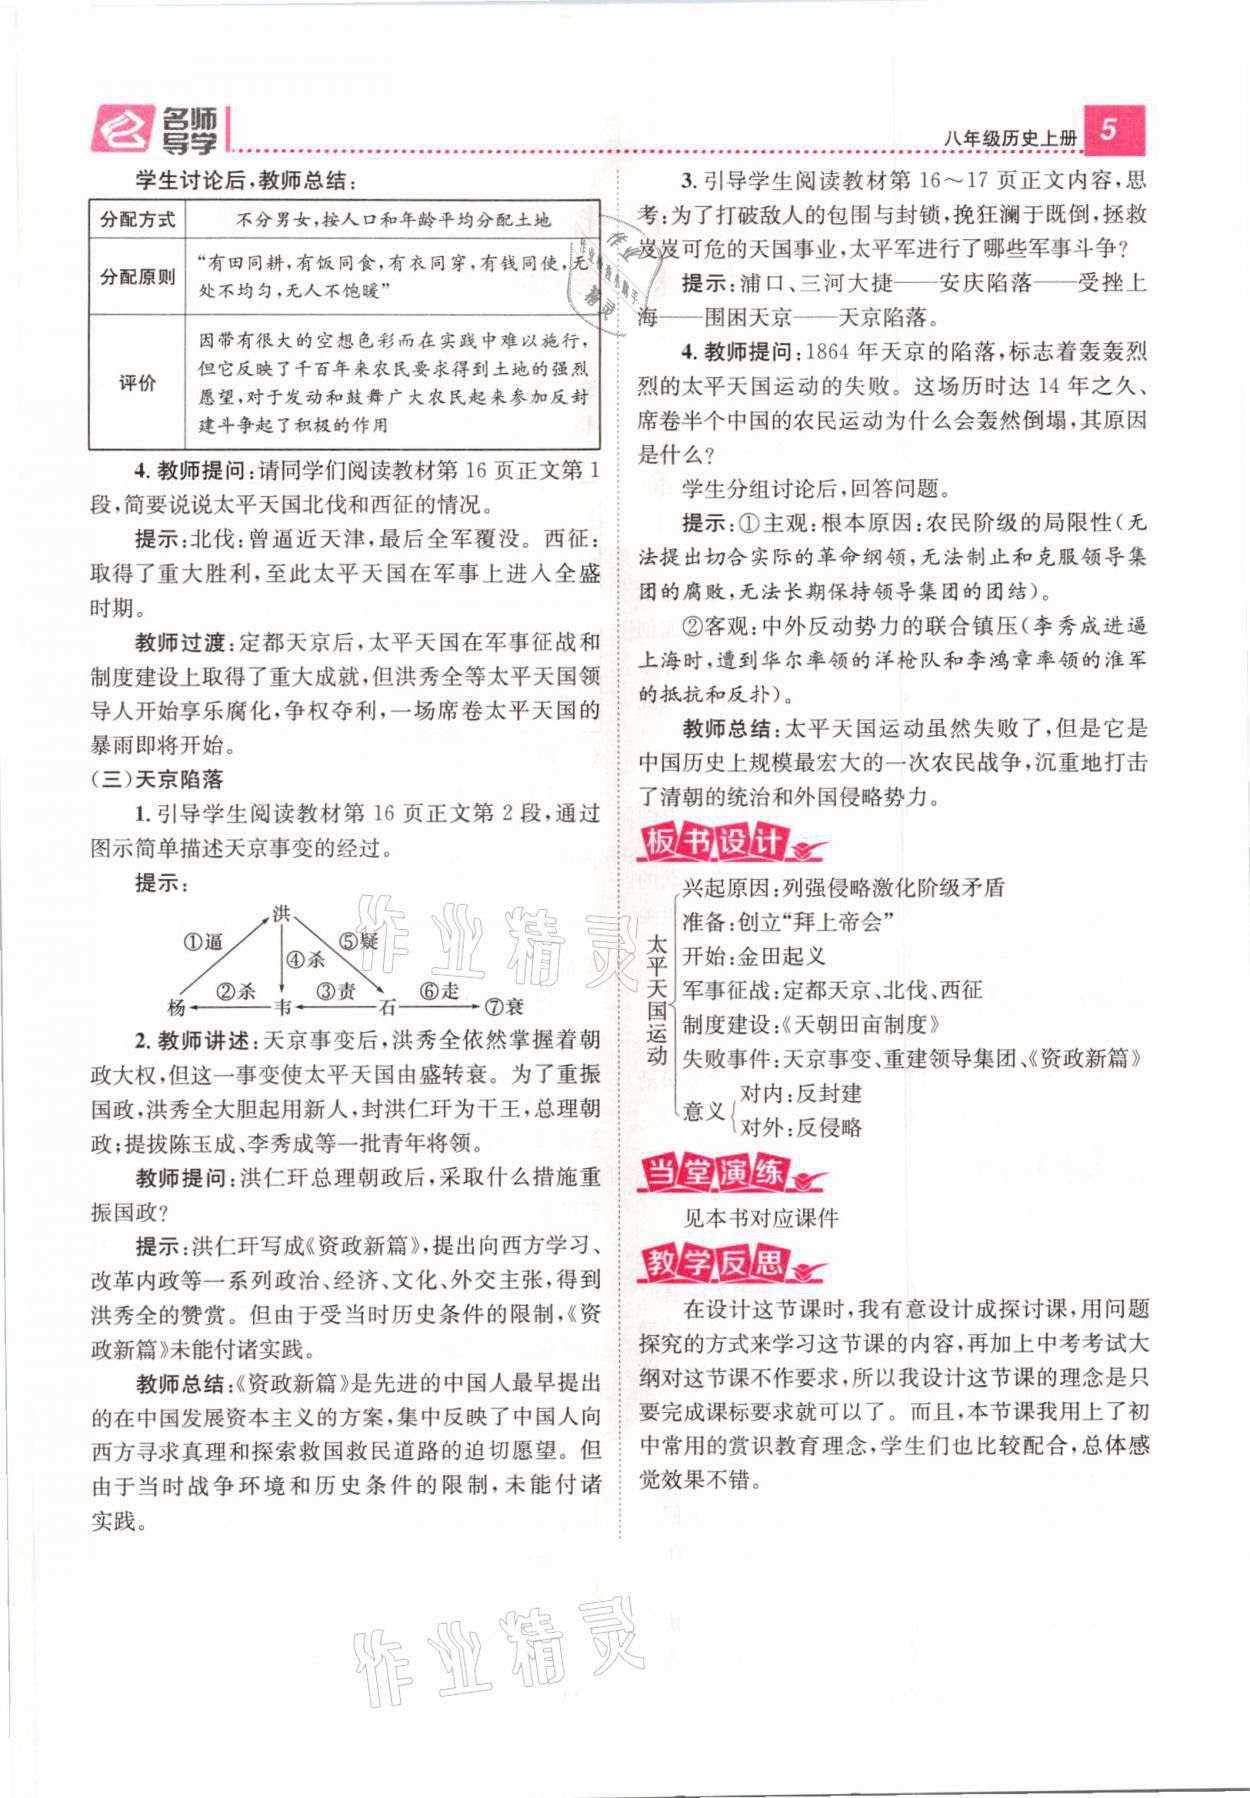 名师
导学
八年级历史上册
5
学生讨论后,教师总结:
分配方式 不分男女,按人口和年龄平均分配土地
分配原则 “有田同耕,有饭同食,有衣同穿,有钱同使,无
处不均匀,无人不饱暖”
评价
因带有很大的空想色彩而在实践中难以施行,
但它反映了千百年来农民要求得到土地的强烈
愿望,对于发动和鼓舞广大农民起来参加反封
建斗争起了积极的作用
4. 教师提问:请同学们阅读教材第 16 页正文第 1
段,简要说说太平天国北伐和西征的情况。
提示:北伐:曾逼近天津,最后全军覆没。西征:
取得了重大胜利,至此太平天国在军事上进入全盛
时期。
教师过渡:定都天京后,太平天国在军事征战和
制度建设上取得了重大成就,但洪秀全等太平天国领
导人开始享乐腐化,争权夺利,一场席卷太平天国的
暴雨即将开始。
(三)天京陷落
1. 引导学生阅读教材第 16 页正文第 2 段,通过
图示简单描述天京事变的经过。
提示:
洪
①逼 ⑤疑
④杀
②杀 ③责 ⑥走
杨 韦 石 ⑦衰
2. 教师讲述:天京事变后,洪秀全依然掌握着朝
政大权,但这一事变使太平天国由盛转衰。为了重振
国政,洪秀全大胆起用新人,封洪仁玕为干王,总理朝
政;提拔陈玉成、李秀成等一批青年将领。
教师提问:洪仁玕总理朝政后,采取什么措施重
振国政?
提示:洪仁玕写成《资政新篇》,提出向西方学习、
改革内政等一系列政治、经济、文化、外交主张,得到
洪秀全的赞赏。但由于受当时历史条件的限制,《资
政新篇》未能付诸实践。
教师总结:《资政新篇》是先进的中国人最早提出
的在中国发展资本主义的方案,集中反映了中国人向
西方寻求真理和探索救国救民道路的迫切愿望。但
由于当时战争环境和历史条件的限制,未能付诸
实践。
3. 引导学生阅读教材第 16～17 页正文内容,思
考:为了打破敌人的包围与封锁,挽狂澜于既倒,拯救
岌岌可危的天国事业,太平军进行了哪些军事斗争?
提示:浦口、三河大捷——安庆陷落——受挫上
海——围困天京——天京陷落。
4. 教师提问:1864 年天京的陷落,标志着轰轰烈
烈的太平天国运动的失败。这场历时达 14 年之久、
席卷半个中国的农民运动为什么会轰然倒塌,其原因
是什么?
学生分组讨论后,回答问题。
提示:①主观:根本原因:农民阶级的局限性(无
法提出切合实际的革命纲领,无法制止和克服领导集
团的腐败,无法长期保持领导集团的团结)。
②客观:中外反动势力的联合镇压(李秀成进逼
上海时,遭到华尔率领的洋枪队和李鸿章率领的淮军
的抵抗和反扑)。
教师总结:太平天国运动虽然失败了,但是它是
中国历史上规模最宏大的一次农民战争,沉重地打击
了清朝的统治和外国侵略势力。
板书设计
太平天国运动
兴起原因:列强侵略激化阶级矛盾
准备:创立“拜上帝会”
开始:金田起义
军事征战:定都天京、北伐、西征
制度建设:《天朝田亩制度》
失败事件:天京事变、重建领导集团、《资政新篇》
意义
对内:反封建
对外:反侵略
当堂演练
见本书对应课件
教学反思
在设计这节课时,我有意设计成探讨课,用问题
探究的方式来学习这节课的内容,再加上中考考试大
纲对这节课不作要求,所以我设计这节课的理念是只
要完成课标要求就可以了。而且,本节课我用上了初
中常用的赏识教育理念,学生们也比较配合,总体感
觉效果不错。
作业精灵
作业精灵